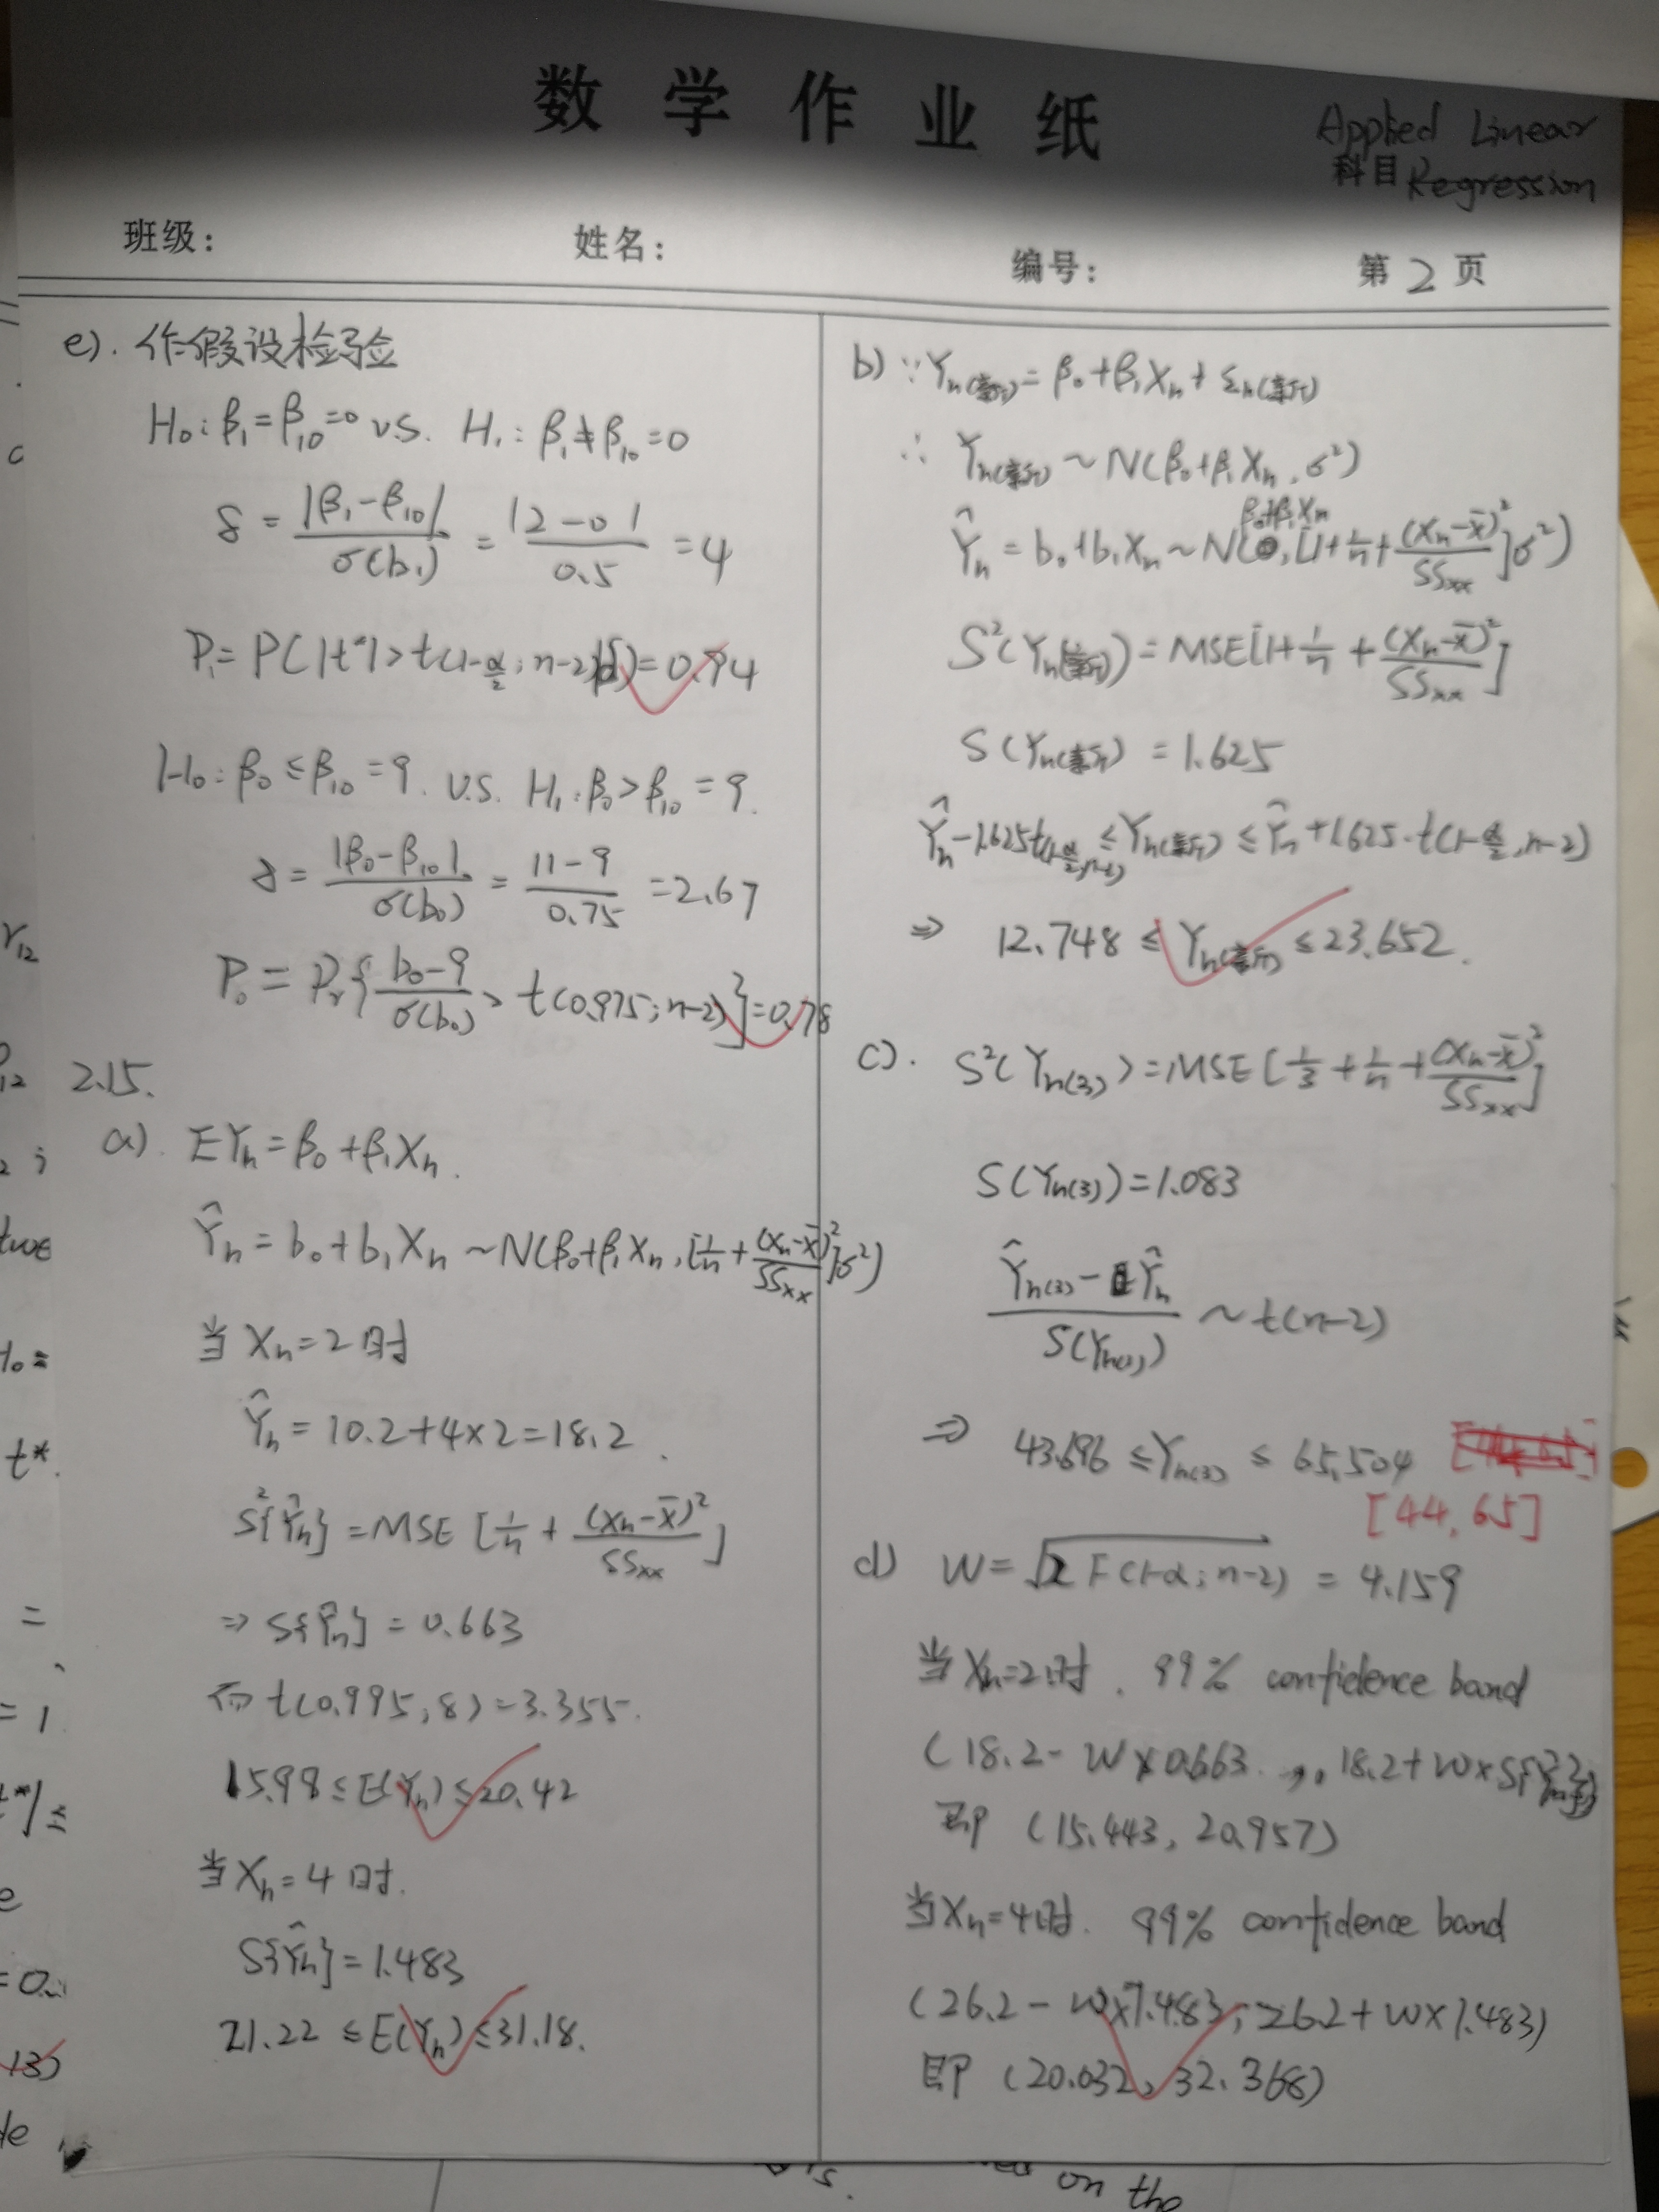 数学作业纸
Applied Linear
科目 Regression
班级:
姓名:
编号:
第 2 页
e). 作假设检验
H₀: β₁ = β₁₀ = 0 v.s. H₁: β₁ ≠ β₁₀ = 0
δ = |β₁ - β₁₀| / σ(b₁) = |2 - 0| / 0.5 = 4
P₁ = P(|t*| > t(1-α/2; n-2)|δ) = 0.94
H₀: β₀ ≤ β₁₀ = 9. v.s. H₁: β₀ > β₁₀ = 9.
δ = |β₀ - β₁₀| / σ(b₀) = 11 - 9 / 0.75 = 2.67
P₀ = Pr{b₀ - 9 / σ(b₀) > t(0.975; n-2)} = 0.78
2.15.
a). EYₕ = β₀ + β₁Xₕ.
Ŷₕ = b₀ + b₁Xₕ ~ N(β₀ + β₁Xₕ, [1/n + (Xₕ - X̄)² / SSxx]σ²)
当 Xₕ = 2 时
Ŷₕ = 10.2 + 4×2 = 18.2.
S²{Ŷₕ} = MSE [1/n + (Xₕ - X̄)² / SSxx]
⇒ S{Ŷₕ} = 0.663
而 t(0.995, 8) = 3.355.
15.98 ≤ E(Yₕ) ≤ 20.42
当 Xₕ = 4 时.
S{Ŷₕ} = 1.483
21.22 ≤ E(Yₕ) ≤ 31.18.
b) ∵ Yₕ(新) = β₀ + β₁Xₕ + εₕ(新)
∴ Yₕ(新) ~ N(β₀ + β₁Xₕ, σ²)
β₀+β₁Xₕ
Ŷₕ = b₀ + b₁Xₕ ~ N( , [1 + 1/n + (Xₕ - X̄)² / SSxx]σ²)
S²(Yₕ(新)) = MSE[1 + 1/n + (Xₕ - X̄)² / SSxx]
S(Yₕ(新)) = 1.625
Ŷₕ - 1.625t(1-α/2, n-2) ≤ Yₕ(新) ≤ Ŷₕ + 1.625·t(1-α/2, n-2)
⇒ 12.748 ≤ Yₕ(新) ≤ 23.652.
c). S²(Yₕ(3)) = MSE [1/3 + 1/n + (Xₕ - X̄)² / SSxx]
S(Yₕ(3)) = 1.083
Ŷₕ(3) - Ŷₕ / S(Yₕ(3)) ~ t(n-2)
⇒ 43.696 ≤ Yₕ(3) ≤ 65.504
[44, 65]
d) W = √2F(1-α; n-2) = 4.159
当 Xₕ=2时. 99% confidence band
(18.2 - W×0.663, 18.2 + W×S{ })
即 (15.443, 20.957)
当 Xₕ=4时. 99% confidence band
(26.2 - W×1.483, 26.2 + W×1.483)
即 (20.032, 32.368)
on the